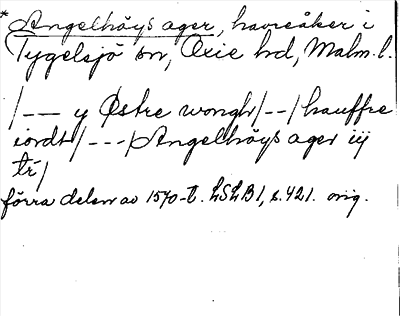 * Angelhöys ager, havreåker i
Tygelsjö sn, Oxie hd, Malm. l.
/--- y Østre wongh/--/hauffre
iordt/---/Angelhöys ager iij
tr/
förra delen av 1570-t. LSLB1, s. 421. orig.